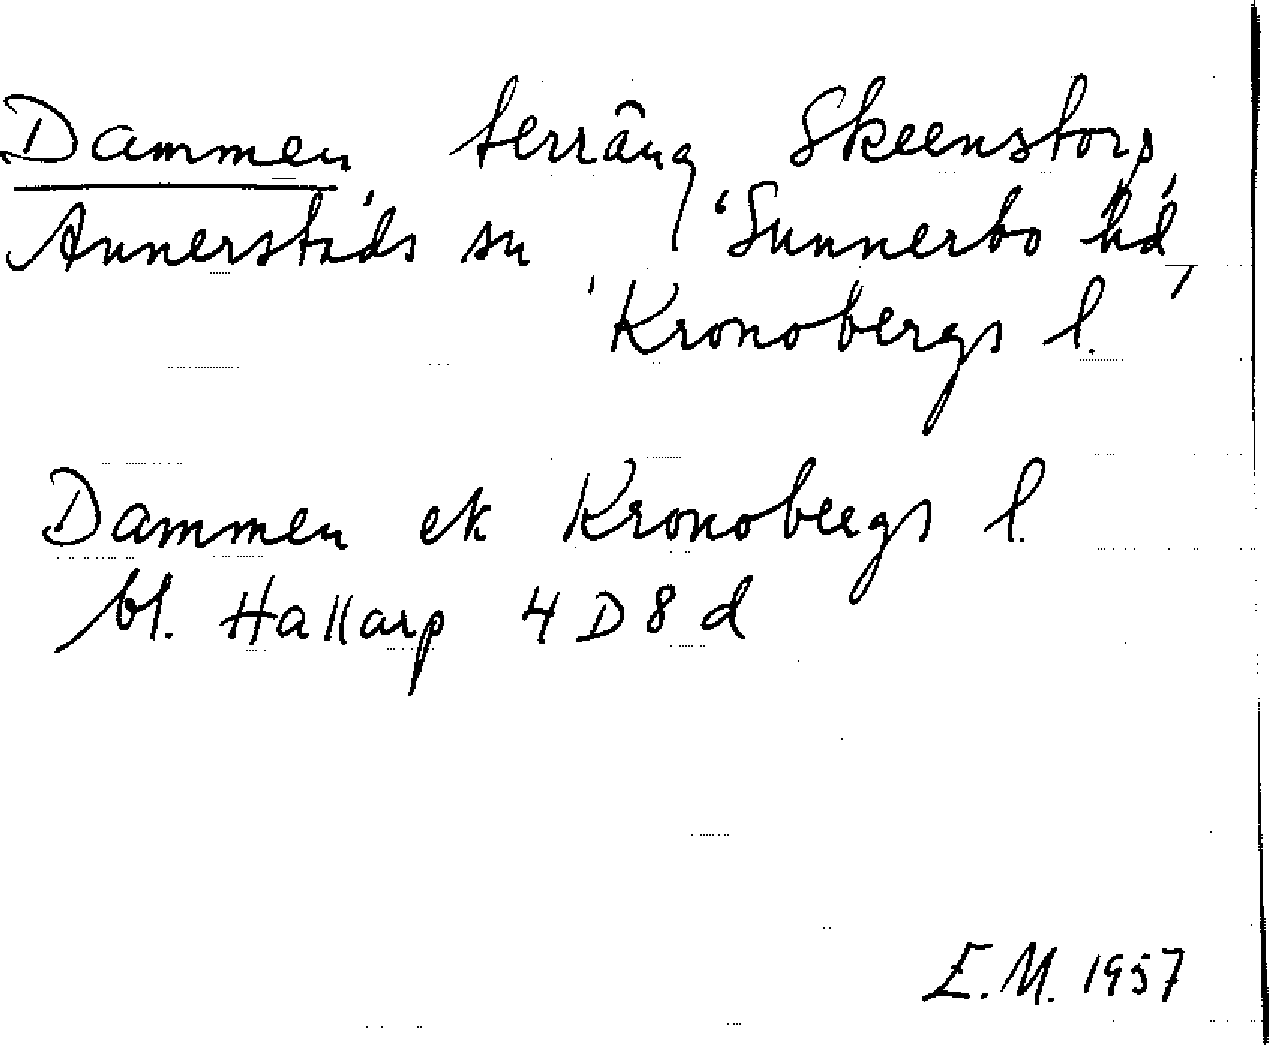 Dammen terräng Skeenstorp,
Annerstads sn 'Sunnerbo hd,
Kronobergs l.
Dammen ek Kronobergs l.
bl. Hallarp 4D8d
E.M. 1957